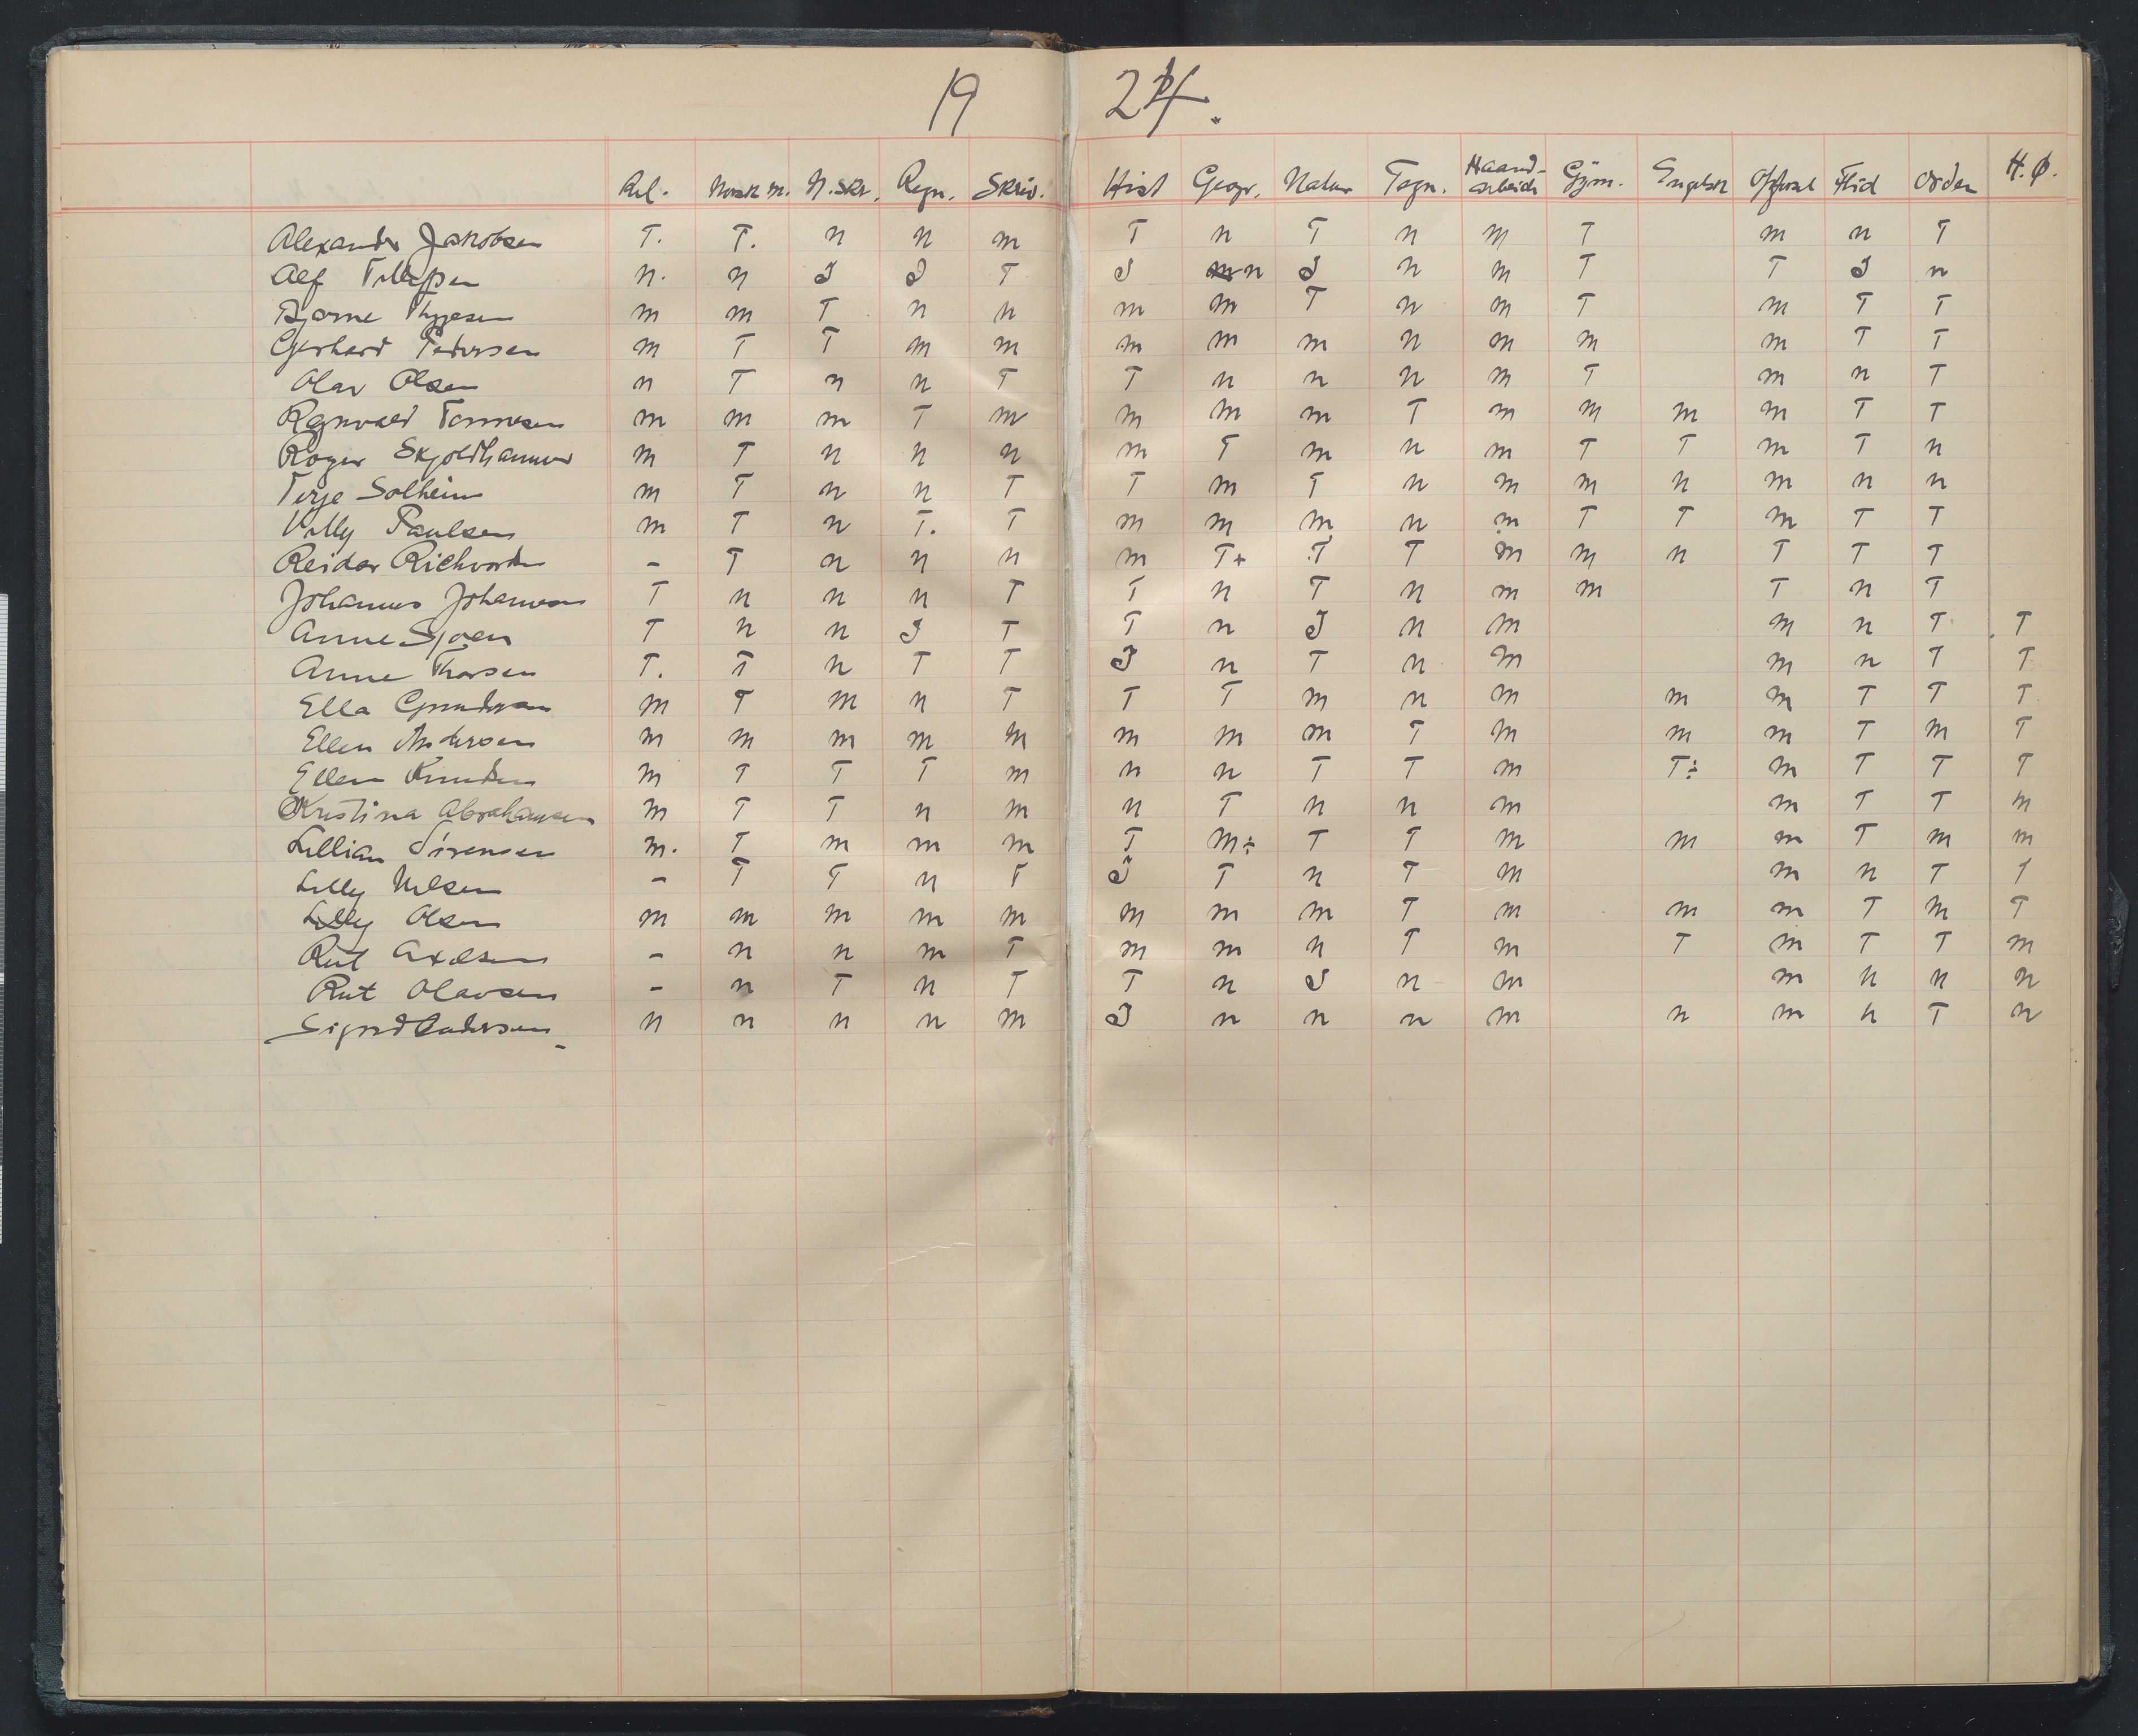 19 24.
Rel. Norsk m. N. skr. Regn. Skriv. Hist Geogr. Natur Tegn. Haand-arbeide Gym. Engelsk Opførsel Flid Orden H.Ø.
Alexander Jakobsen T. T. n n m T n T n m T m n T
Alf Tellefsen n. n J J T J n J n m T T J n
Bjarne Thygesen m m T n n m m T n m T m T T
Gerhard Pedersen m T T m m m m m n m m m T T
Olav Olsen n T n n T T n n n m T m n T
Ragnvald Tønnesen m m m T m m m m T m m m m T T
Roger Skjoldhammer m T n n n m T m n m T T m T n
Terje Solheim m T n n T T m T n m m n m n n
Willy Paulsen m T n T. T m m m n m T T m T T
Reidar Richvordsen – T n n n m T+ T T m m n T T T
Johannes Johannesen T n n n T T n T n m m T n T
Anne Sjøen T n n J T T n J n m m n T T
Anne Thorsen T. T n T T J n T n m m n T T
Ella Gundersen m T m n T T T m n m m m T T T
Ellen Andersen m m m m m m m m T m m m T m T
Ellen Knudsen m T T T m n n T T m T÷ m T T T
Kristina Abrahamsen m T T n m n T n n m m T T m
Lillian Sørensen m. T m m m T m÷ T T m m m T m m
Lilly Nilsen – T T n T J T n T m m n T T
Lilly Olsen m m m m m m m m T m m m T m T
Rut Axelsen – n n m T m m n T m T m T T m
Rut Olavsen – n T n T T n J n m m n n n
Sigrid Andersen n n n n m J n n n m n m n T n